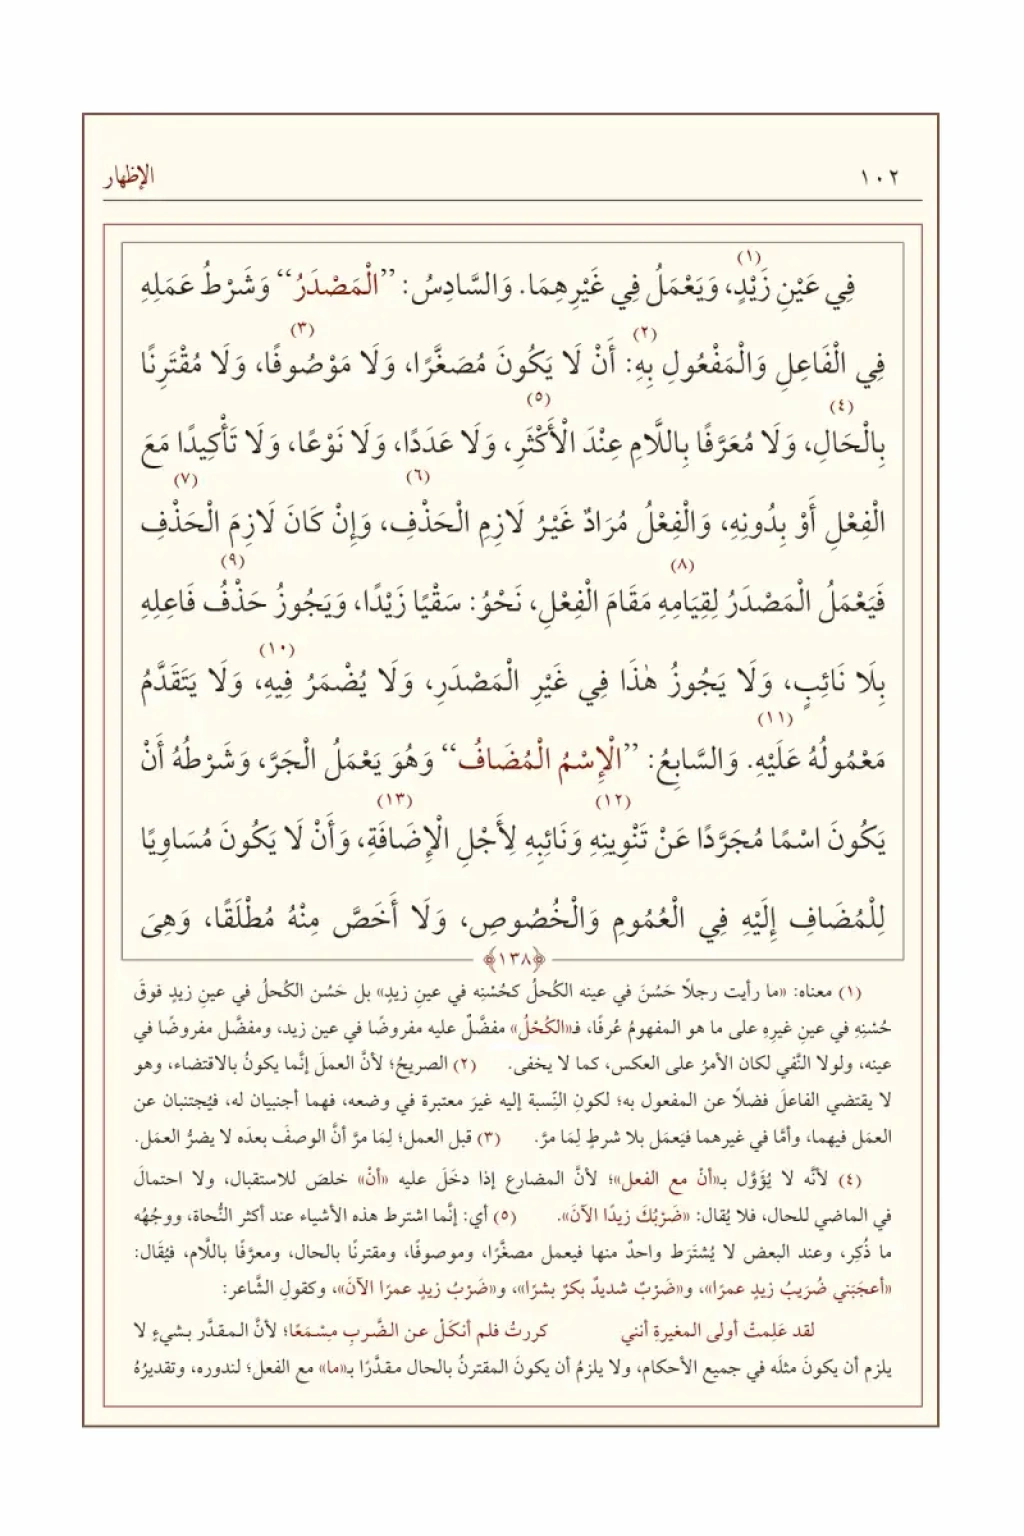 ١٠٢
الإظهار
(١)
فِي عَيْنِ زَيْدٍ، وَيَعْمَلُ فِي غَيْرِهِمَا. وَالسَّادِسُ: ”الْمَصْدَرُ“ وَشَرْطُ عَمَلِهِ
(٢) (٣)
فِي الْفَاعِلِ وَالْمَفْعُولِ بِهِ: أَنْ لَا يَكُونَ مُصَغَّرًا، وَلَا مَوْصُوفًا، وَلَا مُقْتَرِنًا
(٤) (٥)
بِالْحَالِ، وَلَا مُعَرَّفًا بِاللَّامِ عِنْدَ الْأَكْثَرِ، وَلَا عَدَدًا، وَلَا نَوْعًا، وَلَا تَأْكِيدًا مَعَ
(٦) (٧)
الْفِعْلِ أَوْ بِدُونِهِ، وَالْفِعْلُ مُرَادٌ غَيْرُ لَازِمِ الْحَذْفِ، وَإِنْ كَانَ لَازِمَ الْحَذْفِ
(٨) (٩)
فَيَعْمَلُ الْمَصْدَرُ لِقِيَامِهِ مَقَامَ الْفِعْلِ، نَحْوُ: سَقْيًا زَيْدًا، وَيَجُوزُ حَذْفُ فَاعِلِهِ
(١٠)
بِلَا نَائِبٍ، وَلَا يَجُوزُ هٰذَا فِي غَيْرِ الْمَصْدَرِ، وَلَا يُضْمَرُ فِيهِ، وَلَا يَتَقَدَّمُ
(١١)
مَعْمُولُهُ عَلَيْهِ. وَالسَّابِعُ: ”الْإِسْمُ الْمُضَافُ“ وَهُوَ يَعْمَلُ الْجَرَّ، وَشَرْطُهُ أَنْ
(١٢) (١٣)
يَكُونَ اسْمًا مُجَرَّدًا عَنْ تَنْوِينِهِ وَنَائِبِهِ لِأَجْلِ الْإِضَافَةِ، وَأَنْ لَا يَكُونَ مُسَاوِيًا
لِلْمُضَافِ إِلَيْهِ فِي الْعُمُومِ وَالْخُصُوصِ، وَلَا أَخَصَّ مِنْهُ مُطْلَقًا، وَهِىَ
﴿١٣٨﴾
(١) معناه: «ما رأيت رجلاً حَسُنَ في عينه الكُحلُ كحُسْنِه في عينِ زيدٍ» بل حَسُن الكحلُ في عينِ زيدٍ فوقَ
حُسْنِهِ في عينِ غيرِهِ على ما هو المفهومُ عُرفًا، فـ«الكُحْلُ» مفضَّلٌ عليه مفروضًا في عين زيد، ومفضَّل مفروضًا في
عينه، ولولا النَّفي لكان الأمرُ على العكس، كما لا يخفى. (٢) الصريحُ؛ لأنَّ العملَ إنَّما يكونُ بالاقتضاء، وهو
لا يقتضي الفاعلَ فضلاً عن المفعول به؛ لكونِ النِّسبة إليه غيرَ معتبرة في وضعه، فهما أجنبيان له، فيُجتنبان عن
العمَل فيهما، وأمَّا في غيرهما فيَعمَل بلا شرطٍ لِمَا مرَّ. (٣) قبل العمل؛ لِمَا مرَّ أنَّ الوصفَ بعدَه لا يضرُّ العمَل.
(٤) لأنَّه لا يُؤَوَّل بـ«أنْ مع الفعل»؛ لأنَّ المضارع إذا دخَلَ عليه «أنْ» خلصَ للاستقبال، ولا احتمالَ
في الماضي للحال، فلا يُقال: «ضَرْبُكَ زيدًا الآنَ». (٥) أي: إنَّما اشترط هذه الأشياء عند أكثر النُّحاة، ووجُهُه
ما ذُكِر، وعند البعض لا يُشتَرَط واحدٌ منها فيعمل مصغَّرًا، وموصوفًا، ومقترنًا بالحال، ومعرَّفًا باللَّام، فيُقَال:
«أعجَبَني ضُرَيبُ زيدٍ عمرًا»، و«ضَرْبٌ شديدٌ بكرٌ بشرًا»، و«ضَرْبُ زيدٍ عمرًا الآنَ»، وكقولِ الشَّاعر:
لقد عَلِمتْ أولى المغيرةِ أنني كررتُ فلم أنكَلْ عن الضَّربِ مِسْمَعًا؛ لأنَّ المقدَّر بشيءٍ لا
يلزم أن يكونَ مثلَه في جميع الأحكام، ولا يلزمُ أن يكونَ المقترنُ بالحال مقدَّرًا بـ«ما» مع الفعل؛ لندوره، وتقديرُهُ